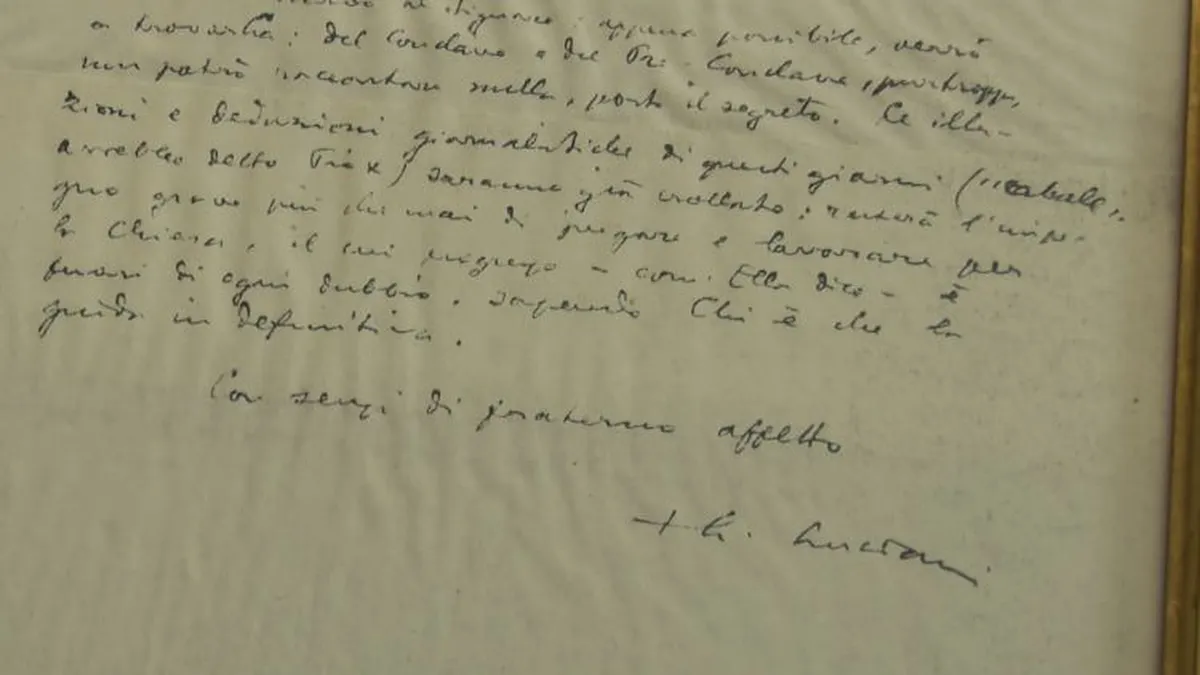 al Signore: appena possibile, verrò
a trovarLa: del Conclave e del Pre Conclave, purtroppo,
non potrò raccontare nulla, posto il segreto. Le illa-
zioni e deduzioni giornalistiche di questi giorni ("cabale",
avrebbe detto Pio X) saranno già crollate: resterà l'impe-
gno grave più che mai di pregare e lavorare per
la Chiesa, il cui progresso – com' Ella dice – è
fuori di ogni dubbio, sapendo Chi è che la
guida in definitiva.
Con sensi di fraterno affetto
+ A. Luciani